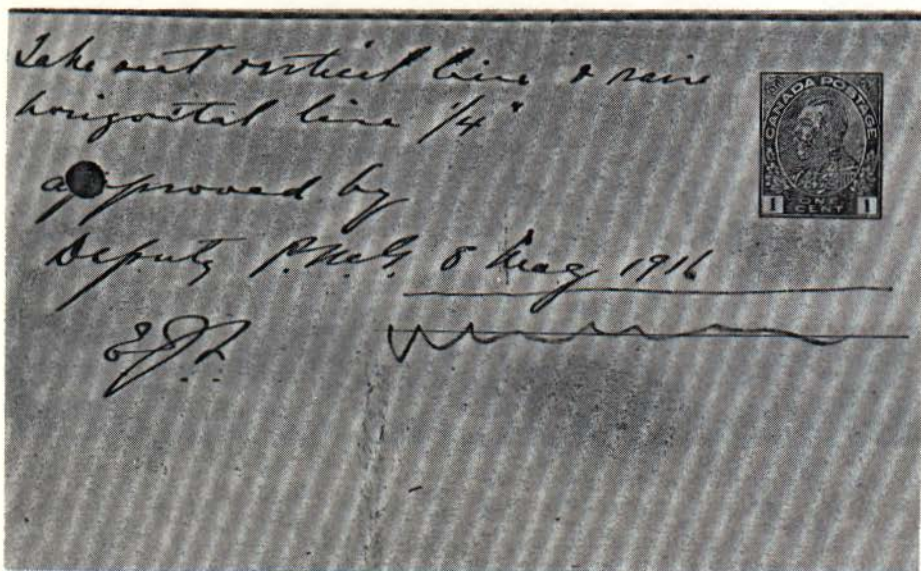 Take out vertical line & raise
horizontal line 1/4"
approved by
Deputy P.M.G. 8 May 1916
CANADA POSTAGE
1 ONE 1
CENT